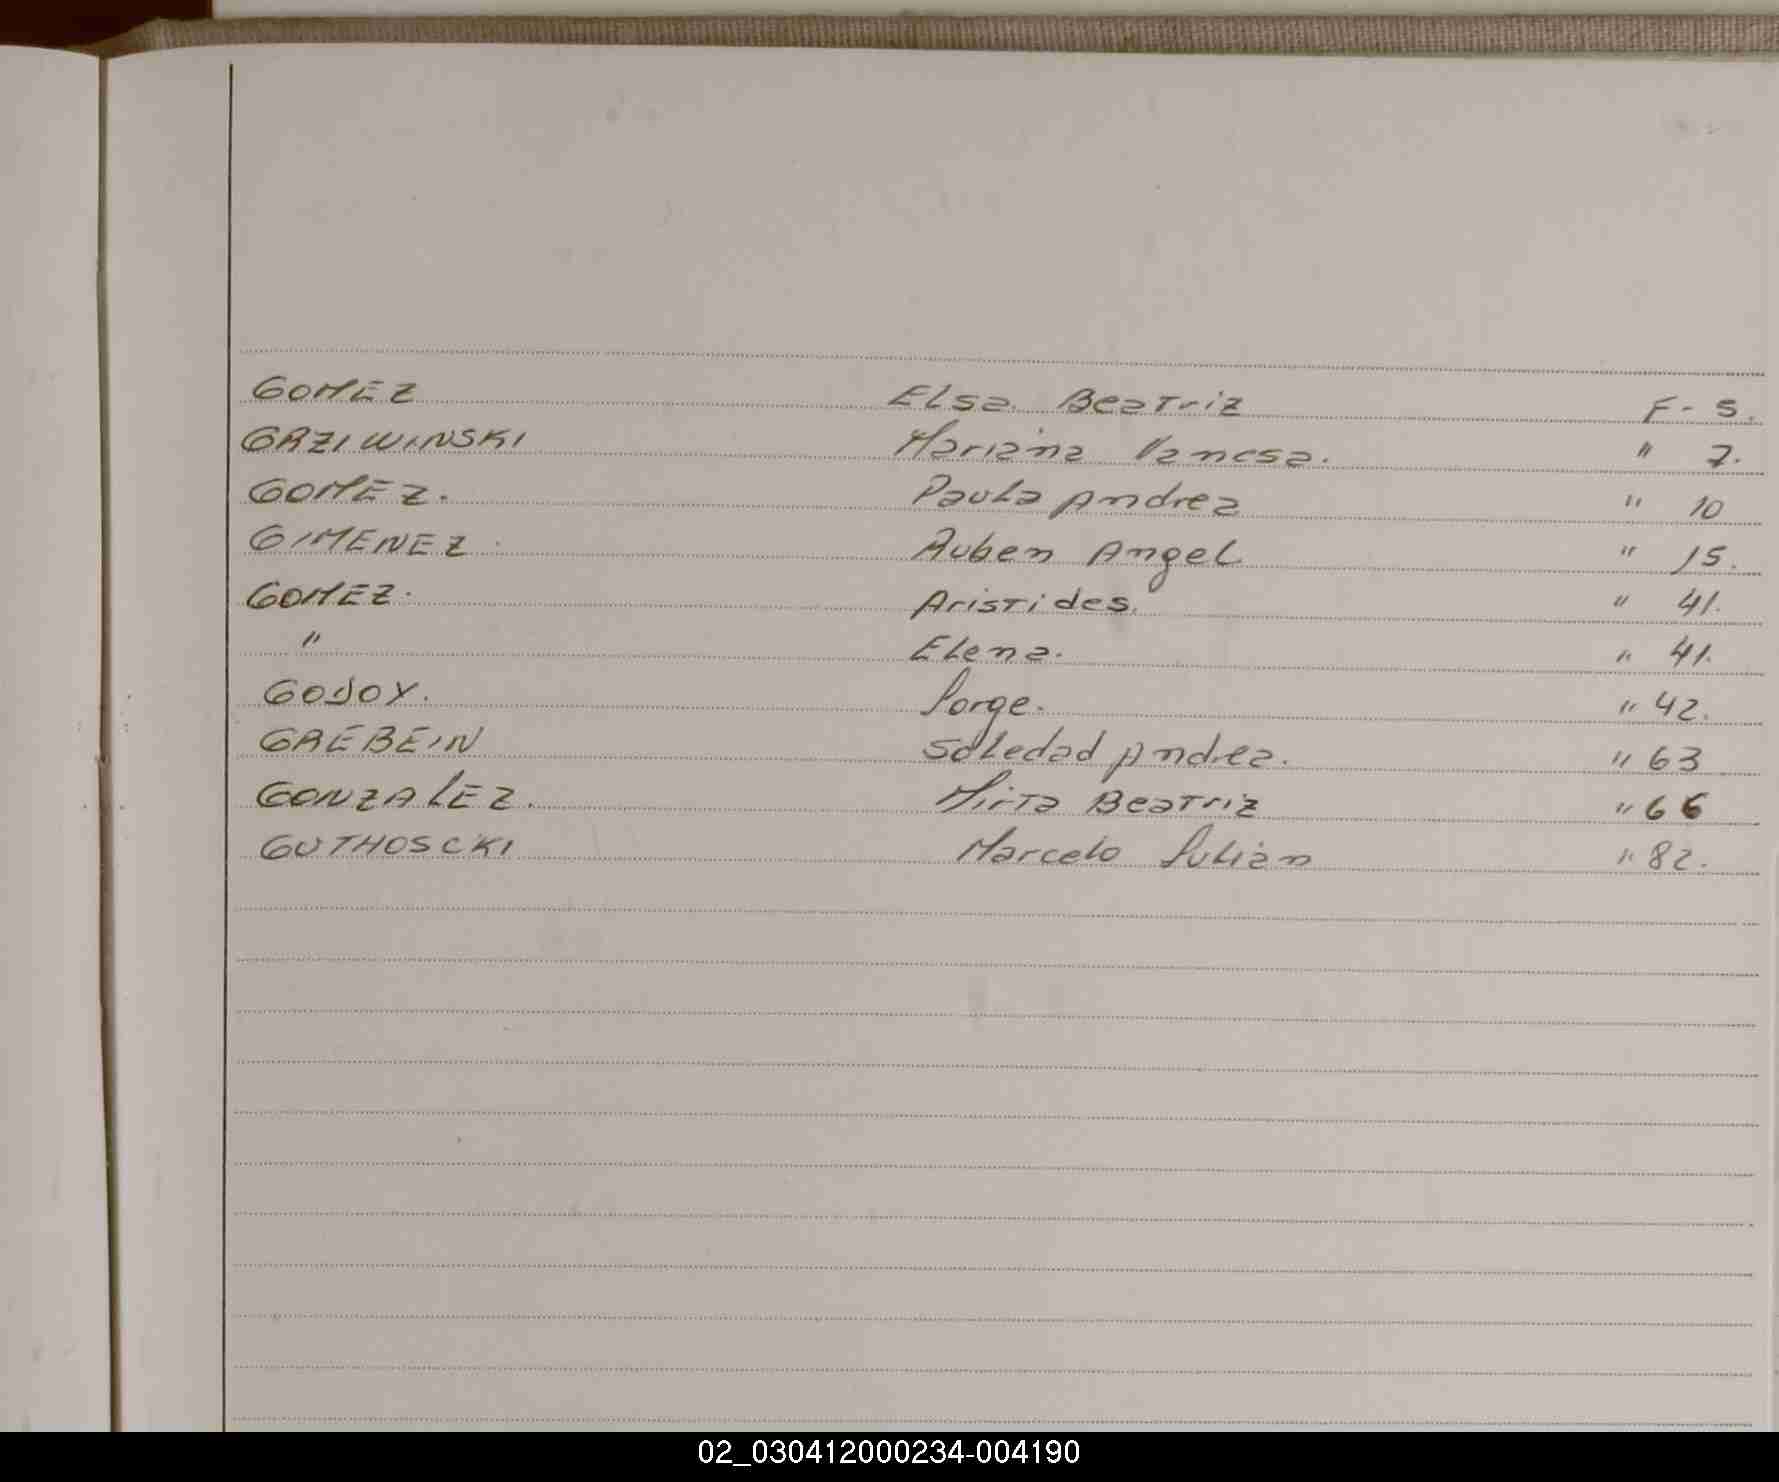 GOMEZ Elsa Beatriz F- 5.
GRZIWINSKI Mariana Vanesa. " 7.
GOMEZ. Paula Andrea " 10
GIMENEZ. Ruben Angel " 15.
GOMEZ. Aristides. " 41.
" Elena. " 41.
GODOY. Jorge. " 42.
GREBEIN Soledad Andrea. " 63
GONZALEZ. Mirta Beatriz " 66
GUTHOSCKI Marcelo Julian " 82.
02_030412000234-004190